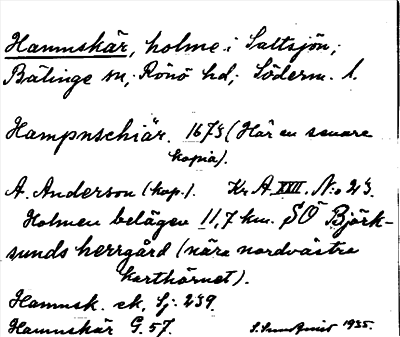 Hamnskär, holme i Saltsjön,
Bälinge sn, Rönö hd, Söderm. l.
Hampnschiär. 1673 (Här en senare
kopia).
A. Anderson (kop.). Kr A XXII. No 23.
Holmen belägen 11,7 km. SO Björk-
sunds herrgård (nära nordvästra
karthörnet).
Hamnsk. ek, Sj. 239.
Hamnskär G. 57. 1935.